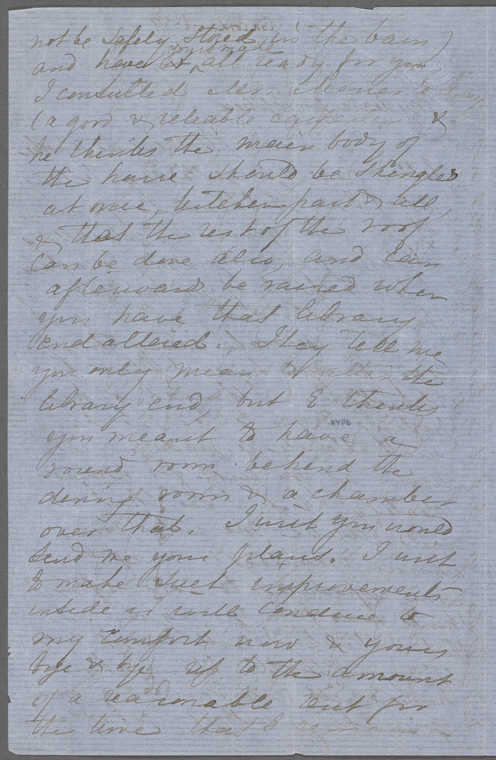 not be safely stored in the barn,
and have it, all ready for you,
I consulted
(a good & reliable carpenter) &
he thinks the main body of
the house should be shingled
at once, kitchen part & all,
& that the rest of the roof
can be done also, and can
afterwards be raised when
you have that library
end altered. They tell me
you only mean to the
library end, but E thinks
you meant to have a
round room behind the
dining room & a chamber
over that. I wish you would
send me your plans. I wish
to make such improvements
inside as will conduce to
my comfort now & yours
bye & bye up to the amount
of a reasonable rent for
the time that I remain
NYPL